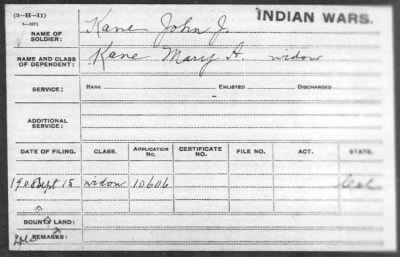 (3—H—11)
INDIAN WARS.
NAME OF SOLDIER: Kane John J.
NAME AND CLASS OF DEPENDENT: Kane Mary A. widow
SERVICE: RANK ENLISTED DISCHARGED
ADDITIONAL SERVICE:
DATE OF FILING. CLASS. APPLICATION No. CERTIFICATE No. FILE NO. ACT. STATE.
1908 Sept 15 widow 10606 Cal
BOUNTY LAND:
REMARKS: